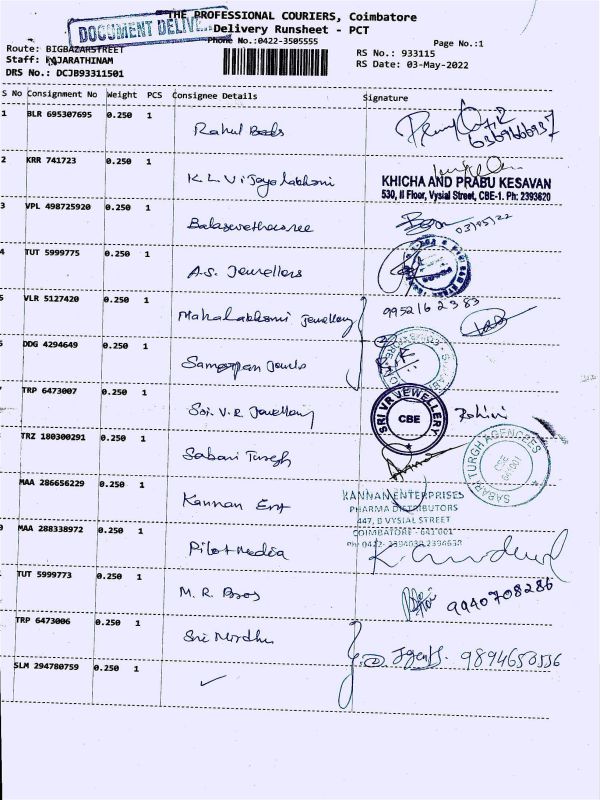 THE PROFESSIONAL COURIERS, Coimbatore
DOCUMENT DELIVE
Delivery Runsheet - PCT
Phone No.:0422-3505555
Page No.:1
Route: BIGBAZARSTREET
RS No.: 933115
Staff: RAJARATHINAM
RS Date: 03-May-2022
DRS No.: DCJB93311501
S No Consignment No Weight PCS Consignee Details Signature
1 BLR 695307695 0.250 1 Rahul
6369666937
2 KRR 741723 0.250 1 K.L. Vijayalakshmi
KHICHA AND PRABU KESAVAN
530, II Floor, Vysial Street, CBE-1. Ph: 2393620
3 VPL 498725920 0.250 1
03/05/22
4 TUT 5999775 0.250 1 A.S. Jewellers
5 VLR 5127420 0.250 1 Mahalakshmi Jewellery
9952162383
DDG 4294649 0.250 1
TRP 6473007 0.250 1 Sri V.R Jewellery
SRI VR JEWELLERY
CBE
TRZ 180300291 0.250 1 Sabari Turgh
SABARI TURGH AGENCEES
CBE
MAA 286656229 0.250 1 Kannan Ent
KANNAN ENTERPRISES
PHARMA DISTRIBUTORS
447, D VYSIAL STREET
COIMBATORE - 641 001
MAA 288338972 0.250 1 Pilot Media
Ph: 0422-2394038, 2394638
TUT 5999773 0.250 1 M. R. Bros
9940708286
TRP 6473006 0.250 1 Sri
Agents. 9894653556
SLM 294780759 0.250 1 ✓